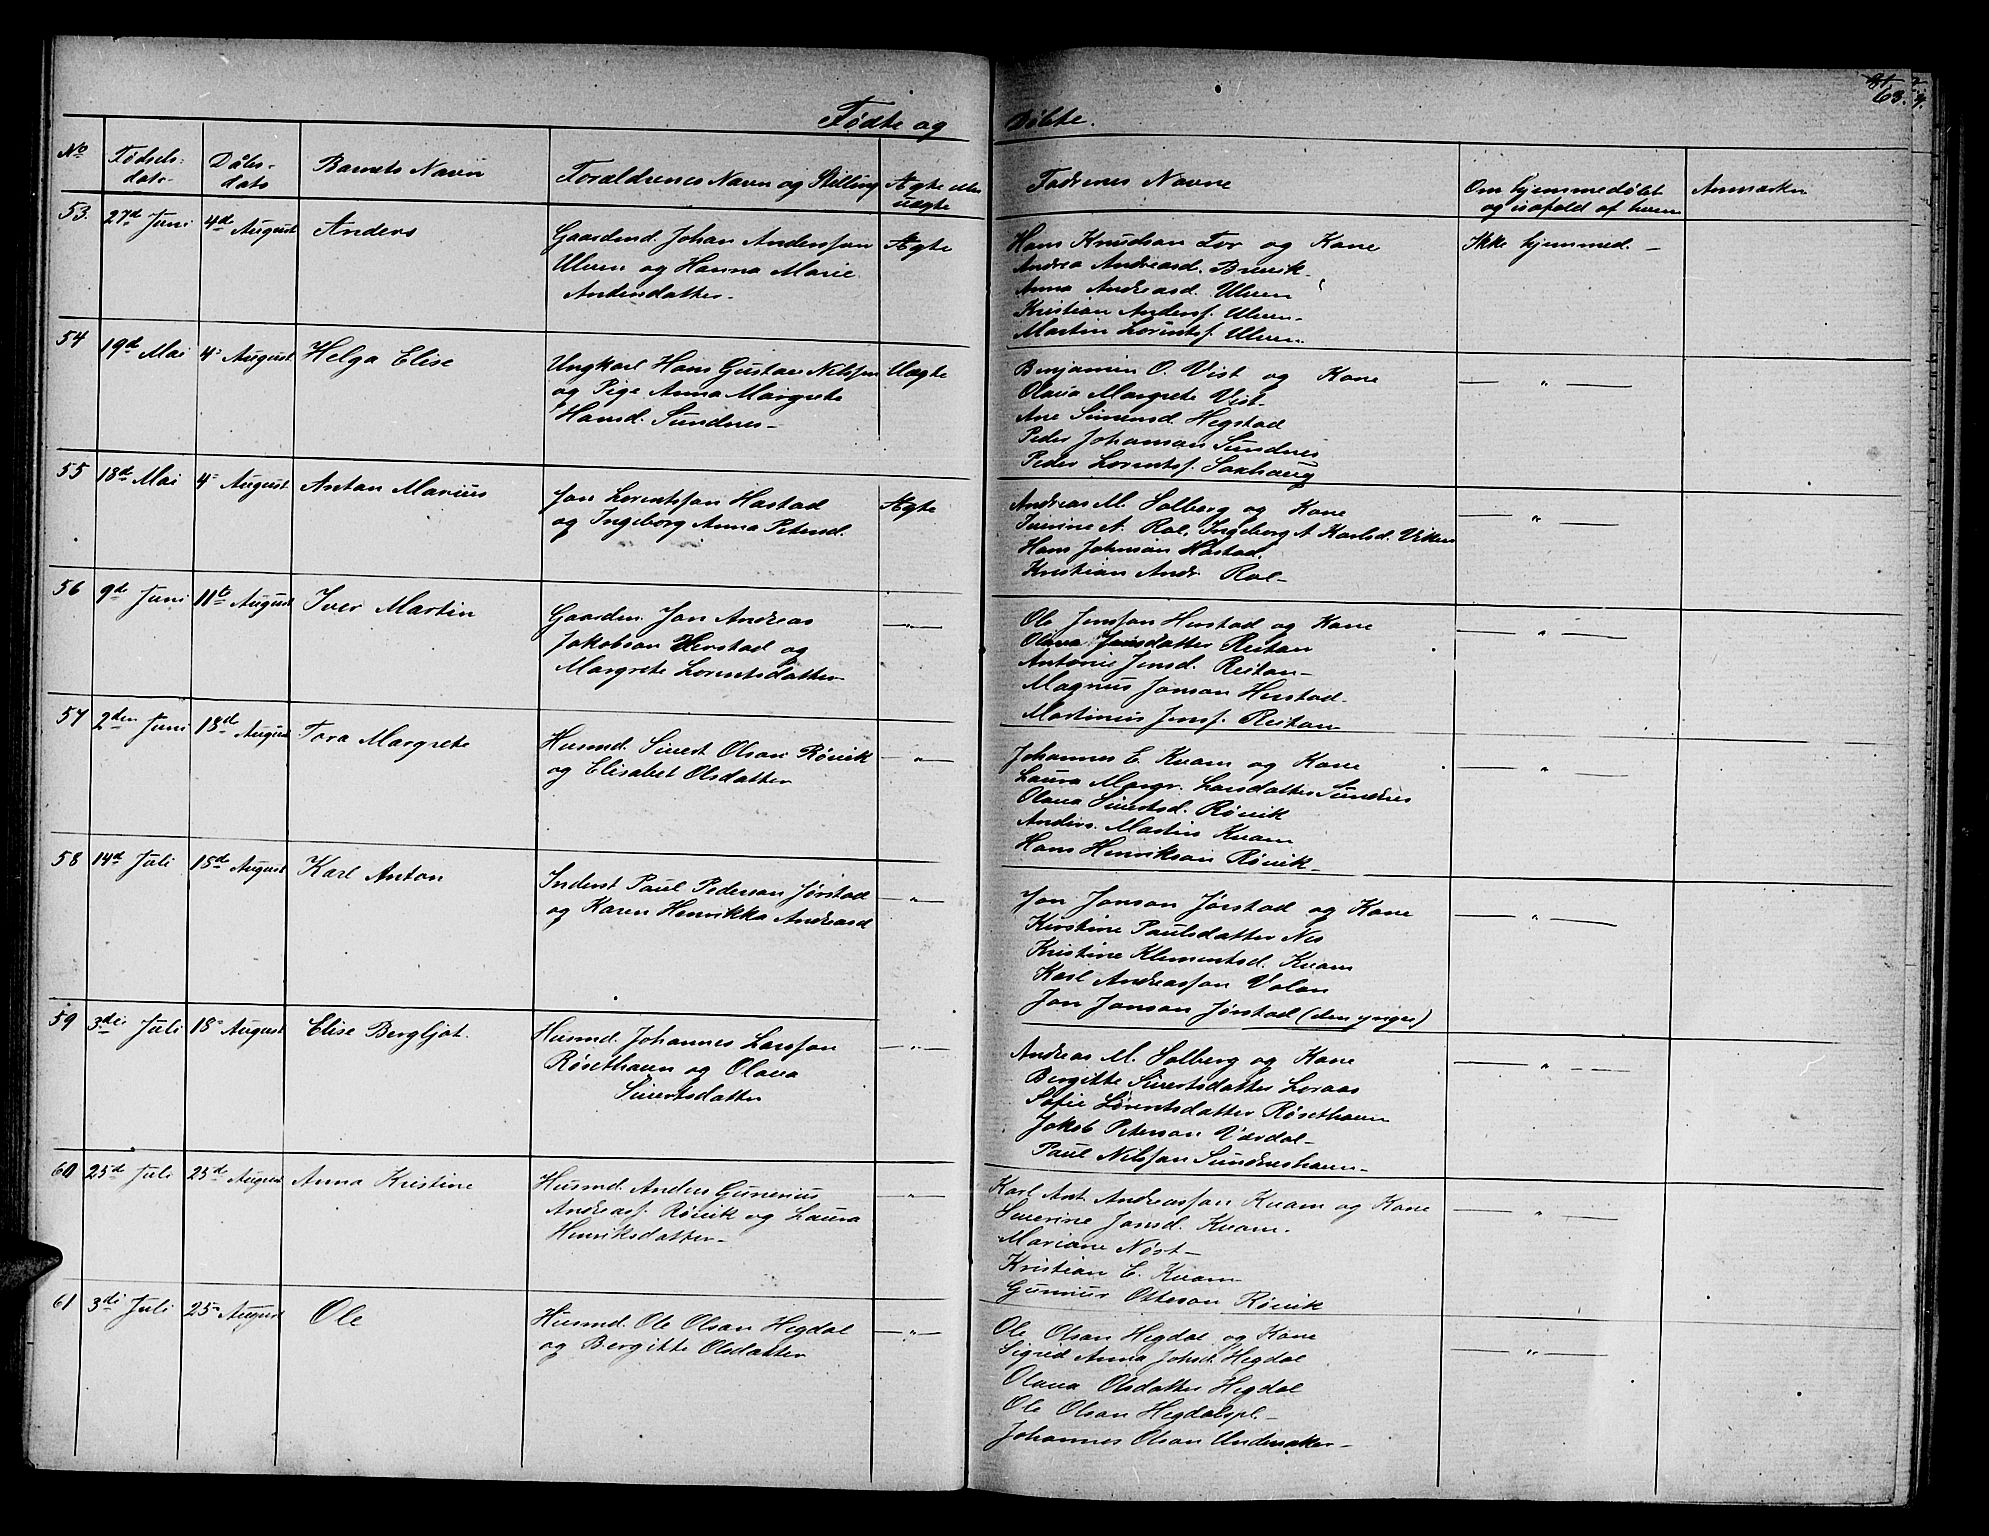 63.
Fødte og
Døbte.
No
Fødsels-
dato
Dåbs-
dato
Barnets Navn
Forældrenes Navn og Stilling
Ægte eller
uægte
Faddernes Navne
Om hjemmedøbt
og i så fald af hvem
Anmærkn
53.
27d Juni
4d August
Anders
Gaardmd. Johan Anderssøn
Ulven og Hanna Marie
Andersdatter-
Ægte
Hans Knudsøn Tor og Kone
Andrea Andreasd. Brevik-
Anna Andreasd. Ulven
Kristian Andersf. Ulven.
Martin Lorentsf. Ulven.
Ikke hjemmed. -
54
19d Mai
4d August
Helga Elise
Ungkarl Hans Gustav Nilssøn
og Pige Anna Margrete
Hansd. Sundnes-
Uægte
Benjamin O. Vist og Kone
Olava Margrete Vist-
Ane Simensd. Hegstad
Peder Johansøn Sundnes
Peder Lorentsf. Saxhaug
— " —
55
18d Mai
4d August
Anton Marius
Jon Lorentssøn Hastad
og Ingeborg Anna Petersd.
Ægte
Andreas M. Solberg og Kone
A. Rol, Ingeborg A Karlsd. Viken
Hans Johnsøn Hastad.
Kristian Andr. Rol-
— " —
56
9d Juni
11te August
Iver Martin
Gaardm. Jon Andreas
Jakobsøn Herstad og
Margrete Lorentsdatter
— " —
Ole Jenssøn Herstad og Kone
Olava Jensdatter Reitan
Antonie Jensd. Reitan-
Magnus Jonsøn Herstad-
Martinus Jensf. Reitan
— " —
57
2den Juni
18de August
Tora Margrete
Husmd. Sivert Olsøn Røvik
og Elisabet Olsdatter
— " —
Johannes E. Kvam og Kone
Laura Margr. Larsdatter Sundnes
Olava Sivertsd. Røvik
Anders Martin Kvam
Hans Henriksøn Røvik-
— " —
58
14d Juli
15de August
Karl Anton
Inderst Paul Pedersøn Jørstad
og Karen Henrikka Andreasd
— " —
Jon Jonsøn Jørstad og Kone
Kirstine Paulsdatter Nes
Kristine Klementsd. Kvam
Karl Andreassøn Volan
Jon Jonsøn Jørstad (den yngre)
— " —
59
3die Juli
18d August
Elise Bergljot.
Husmd. Johannes Larssøn
Røsethaven og Olava
Sivertsdatter
— " —
Andreas M. Solberg og Kone
Bergitte Sivertsdatter Loraas
Sofie Lorentsdatter Røsethaven
Jakob Petersøn Værdal-
Paul Nilssøn Sundneshaven-
— " —
60
25d Juli
25de August
Anna Kristine
Husmd. Anders Gunerius
Andreasf. Røvik og Laura
Henriksdatter-
— " —
Karl Ant. Andreassøn Kvam og Kone
Severine Jonsd. Kvam.
Mariane Nøst-
Kristian E. Kvam
Gunerius Ottesøn Røvik
— " —
61
3di Juli
25d August
Ole
Husmd. Ole Olsøn Hegdal
og Bergitte Olsdatter
— " —
Ole Olsøn Hegdal og Kone
Sigrid Anna Johsd. Hegdal
Olava Olsdatter Hegdal
Ole Olsøn Hegdalspl.-
Johannes Olsøn Undersaker-
— " —